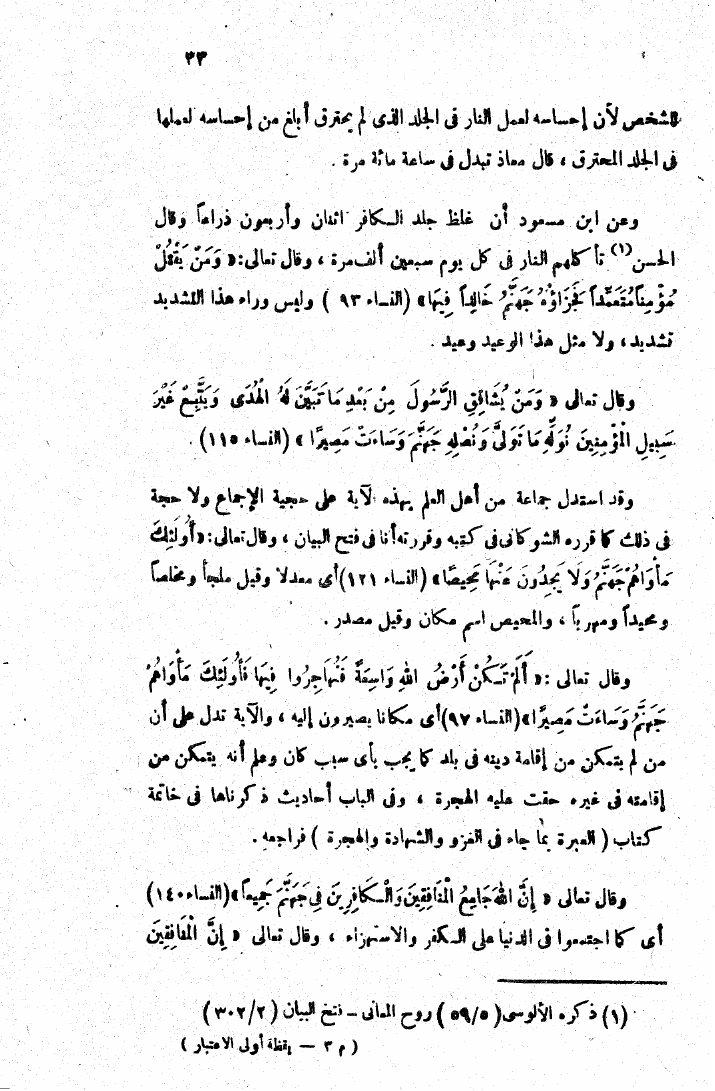 ٣٣
للشخص لأن إحساسه لعمل النار فى الجلد الذى لم يحترق أبلغ من إحساسه لعملها
فى الجلد المحترق ، قال معاذ تبدل فى ساعة مائة مرة .
وعن ابن مسعود أن غلظ جلد الكافر اثنان وأربعون ذراعاً وقال
الحسن(١) تأكلهم النار فى كل يوم سبعين ألف مرة ، وقال تعالى : « وَمَنْ يَقْتُلْ
مُؤْمِناً مُتَعَمِّداً فَجَزَاؤُهُ جَهَنَّمُ خَالِداً فِيهَا » (النساء ٩٣ ) وليس وراء هذا التشديد
تشديد ، ولا مثل هذا الوعيد وعيد .
وقال تعالى « وَمَنْ يُشَاقِقِ الرَّسُولَ مِنْ بَعْدِ مَا تَبَيَّنَ لَهُ الْهُدَى وَيَتَّبِعْ غَيْرَ
سَبِيلِ الْمُؤْمِنِينَ نُوَلِّهِ مَا تَوَلَّى وَنُصْلِهِ جَهَنَّمَ وَسَاءَتْ مَصِيرًا » (النساء ١١٥) .
وقد استدل جماعة من أهل العلم بهذه الآية على حجية الإجماع ولا حجة
فى ذلك كما قرره الشوكانى فى كتبه وقررته أنا فى فتح البيان ، وقال تعالى : « أُولَئِكَ
مَأْوَاهُمْ جَهَنَّمُ وَلَا يَجِدُونَ عَنْهَا مَحِيصًا » (النساء ١٢١) أى معدلا وقيل ملجأ ومخلصاً
ومحيداً ومهرباً ، والمحيص اسم مكان وقيل مصدر .
وقال تعالى : « أَلَمْ تَكُنْ أَرْضُ اللهِ وَاسِعَةً فَتُهَاجِرُوا فِيهَا فَأُولَئِكَ مَأْوَاهُمْ
جَهَنَّمُ وَسَاءَتْ مَصِيرًا » (النساء ٩٧) أى مكانا يصيرون إليه ، والآية تدل على أن
من لم يتمكن من إقامة دينه فى بلد كما يجب بأى سبب كان وعلم أنه يتمكن من
إقامته فى غيره حقت عليه الهجرة ، وفى الباب أحاديث ذكرناها فى خاتمة
كتاب ( العبرة بما جاء فى الغزو والشهادة والهجرة ) فراجعه .
وقال تعالى « إِنَّ اللهَ جَامِعُ الْمُنَافِقِينَ وَالْكَافِرِينَ فِى جَهَنَّمَ جَمِيعاً » (النساء ١٤٠)
أى كما اجتمعوا فى الدنيا على الكفر والاستهزاء ، وقال تعالى « إِنَّ الْمُنَافِقِينَ
(١) ذكره الألوسى ( ٥٩/٥ ) روح المعانى - فتح البيان ( ٣٠٢/٢ )
( م ٣ — يقظة أولى الاعتبار )